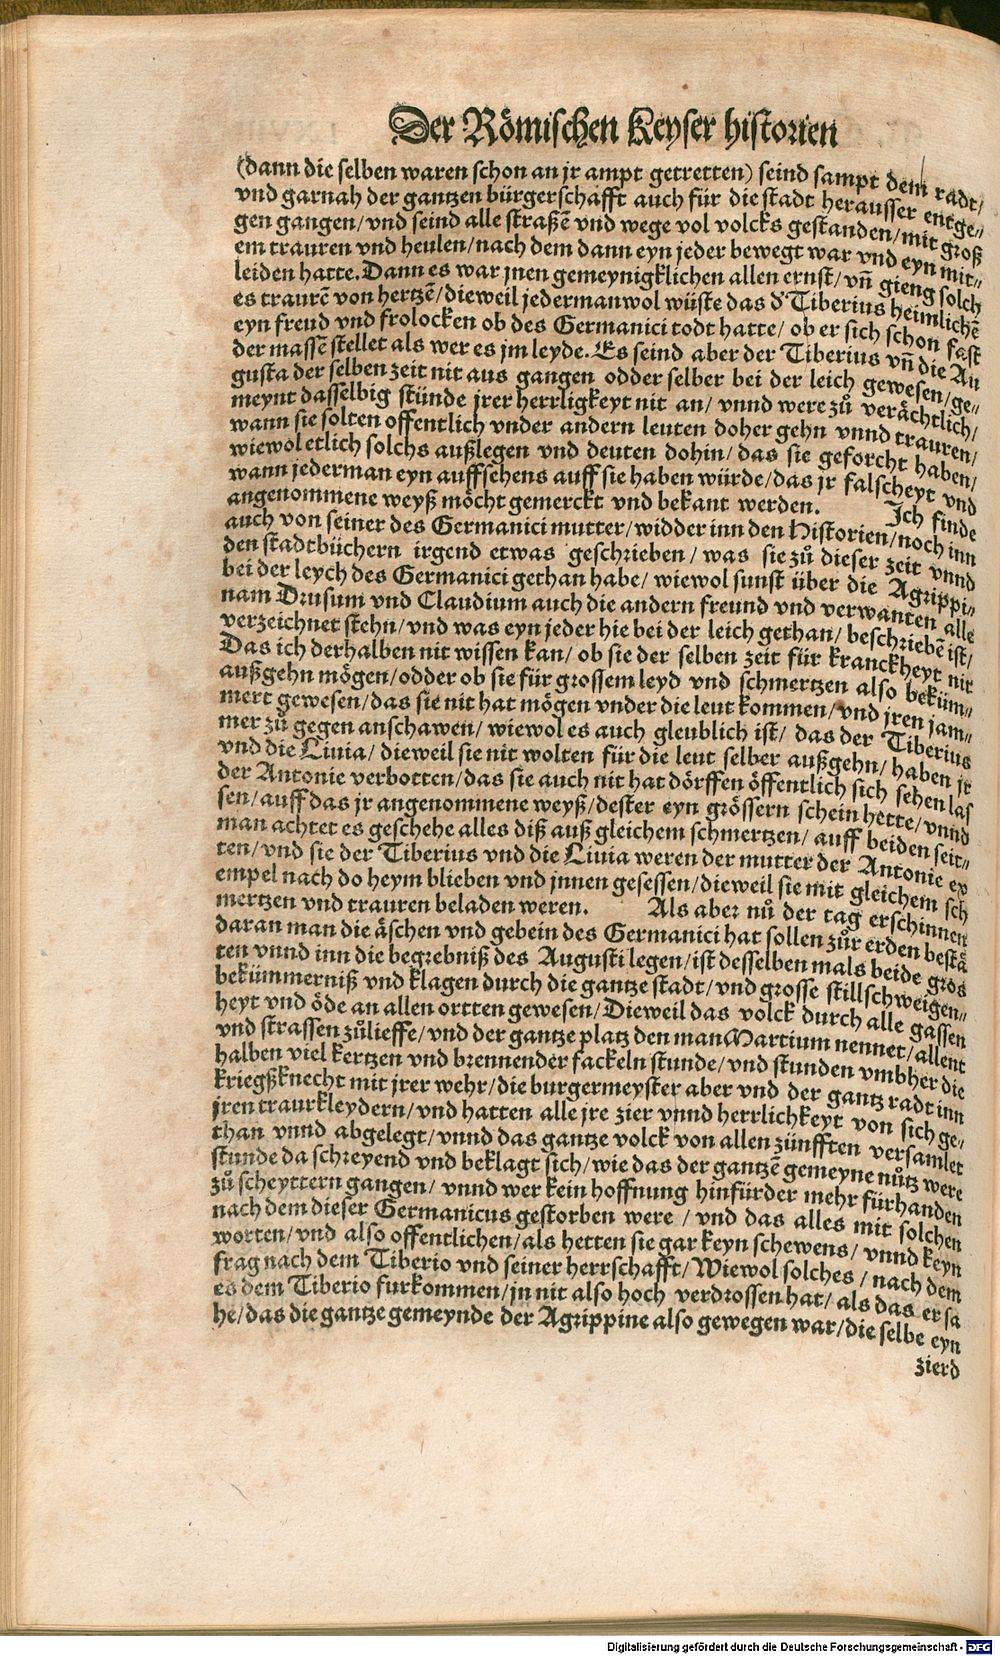 Der Römischen Keyser historien
(dann die selben waren schon an jr ampt getretten) seind sampt dem radt/
vnd garnah der gantzen bürgerschafft auch für die stadt herausser entge⸗
gen gangen/vnd seind alle straßē vnd wege vol volcks gestanden/mit groß
em trauren vnd heulen/nach dem dann eyn jeder bewegt war vnd eyn mit⸗
leiden hatte. Dann es war jnen gemeynigklichen allen ernst/vñ gieng solch
es traurē von hertzē/dieweil jederman wol wüste das d' Tiberius heimlichē
eyn freud vnd frolocken ob des Germanici todt hatte/ ob er sich schon fast
der massē stellet als wer es jm leyde. Es seind aber der Tiberius vñ die Au
gusta der selben zeit nit aus gangen odder selber bei der leich gewesen/ge⸗
meynt dasselbig stünde jrer herrligkeyt nit an/ vnnd were zů verächtlich/
wann sie solten offentlich vnder andern leuten doher gehn vnnd trauren/
wiewol etlich solchs außlegen vnd deuten dohin/ das sie geforcht haben/
wann jederman eyn auffsehens auff sie haben würde/das jr falscheyt vnd
angenommene weyß möcht gemerckt vnd bekant werden. Ich finde
auch von seiner des Germanici mutter/widder inn den Historien/noch inn
den stadtbüchern irgend etwas geschrieben/ was sie zů dieser zeit vnnd
bei der leych des Germanici gethan habe/ wiewol sunst über die Agrippi⸗
nam Drusum vnd Claudium auch die andern freund vnd verwanten alle
verzeichnet stehn/vnd was eyn jeder hie bei der leich gethan/ beschriebē ist/
Das ich derhalben nit wissen kan/ ob sie der selben zeit für kranckheyt nit
außgehn mögen/odder ob sie für grossem leyd vnd schmertzen also beküm⸗
mert gewesen/das sie nit hat mögen vnder die leut kommen/vnd jren jam⸗
mer zů gegen anschawen/ wiewol es auch gleublich ist/ das der Tiberius
vnd die Liuia/ dieweil sie nit wolten für die leut selber außgehn/ haben jr
der Antonie verbotten/das sie auch nit hat dörffen öffentlich sich sehen las
sen/auff das jr angenommene weyß/dester eyn grössern schein hette/vnnd
man achtet es geschehe alles diß auß gleichem schmertzen/ auff beiden seit⸗
ten/vnd sie der Tiberius vnd die Liuia weren der mutter der Antonie ex
empel nach do heym blieben vnd jnnen gesessen/dieweil sie mit gleichem sch
mertzen vnd trauren beladen weren. Als aber nů der tag erschinnen
daran man die äschen vnd gebein des Germanici hat sollen zůr erden bestä
ten vnnd inn die begrebniß des Augusti legen/ist desselben mals beide gros
bekümmerniß vnd klagen durch die gantze stadt/vnd grosse stillschweigen⸗
heyt vnd öde an allen ortten gewesen/Dieweil das volck durch alle gassen
vnd strassen zůlieffe/vnd der gantze platz den man Martium nennet/allent
halben viel kertzen vnd brennender fackeln stunde/vnd stunden vmbher die
kriegßknecht mit jrer wehr/die burgermeyster aber vnd der gantz radt inn
jren traurkleydern/vnd hatten alle jre zier vnnd herrlichkeyt von sich ge⸗
than vnnd abgelegt/vnnd das gantze volck von allen zünfften versamlet
stunde da schreyend vnd beklagt sich/wie das der gantzē gemeyne nůtz were
zů scheyttern gangen/ vnnd wer kein hoffnung hinfürder mehr fürhanden
nach dem dieser Germanicus gestorben were/ vnd das alles mit solchen
worten/vnd also offentlichen/als hetten sie gar keyn schewens/ vnnd keyn
frag nach dem Tiberio vnd seiner herrschafft/Wiewol solches/ nach dem
es dem Tiberio furkommen/jn nit also hoch verdrossen hat/ als das er sa
he/das die gantze gemeynde der Agrippine also gewegen war/die selbe eyn
zierd
Digitalisierung gefördert durch die Deutsche Forschungsgemeinschaft - DFG